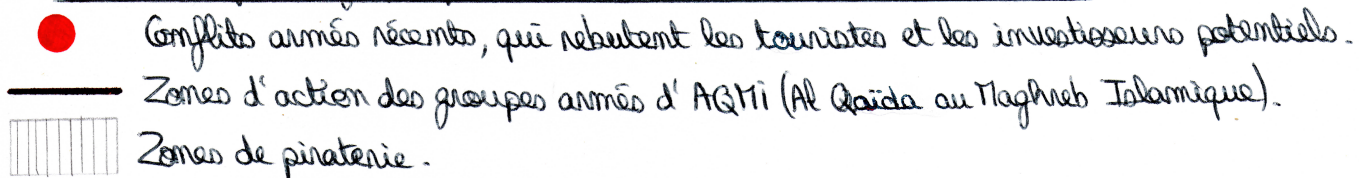 Conflits armés récents, qui rebutent les touristes et les investisseurs potentiels.
Zones d'action des groupes armés d' AQMi (Al Qaïda au Maghreb Islamique).
Zones de piraterie.